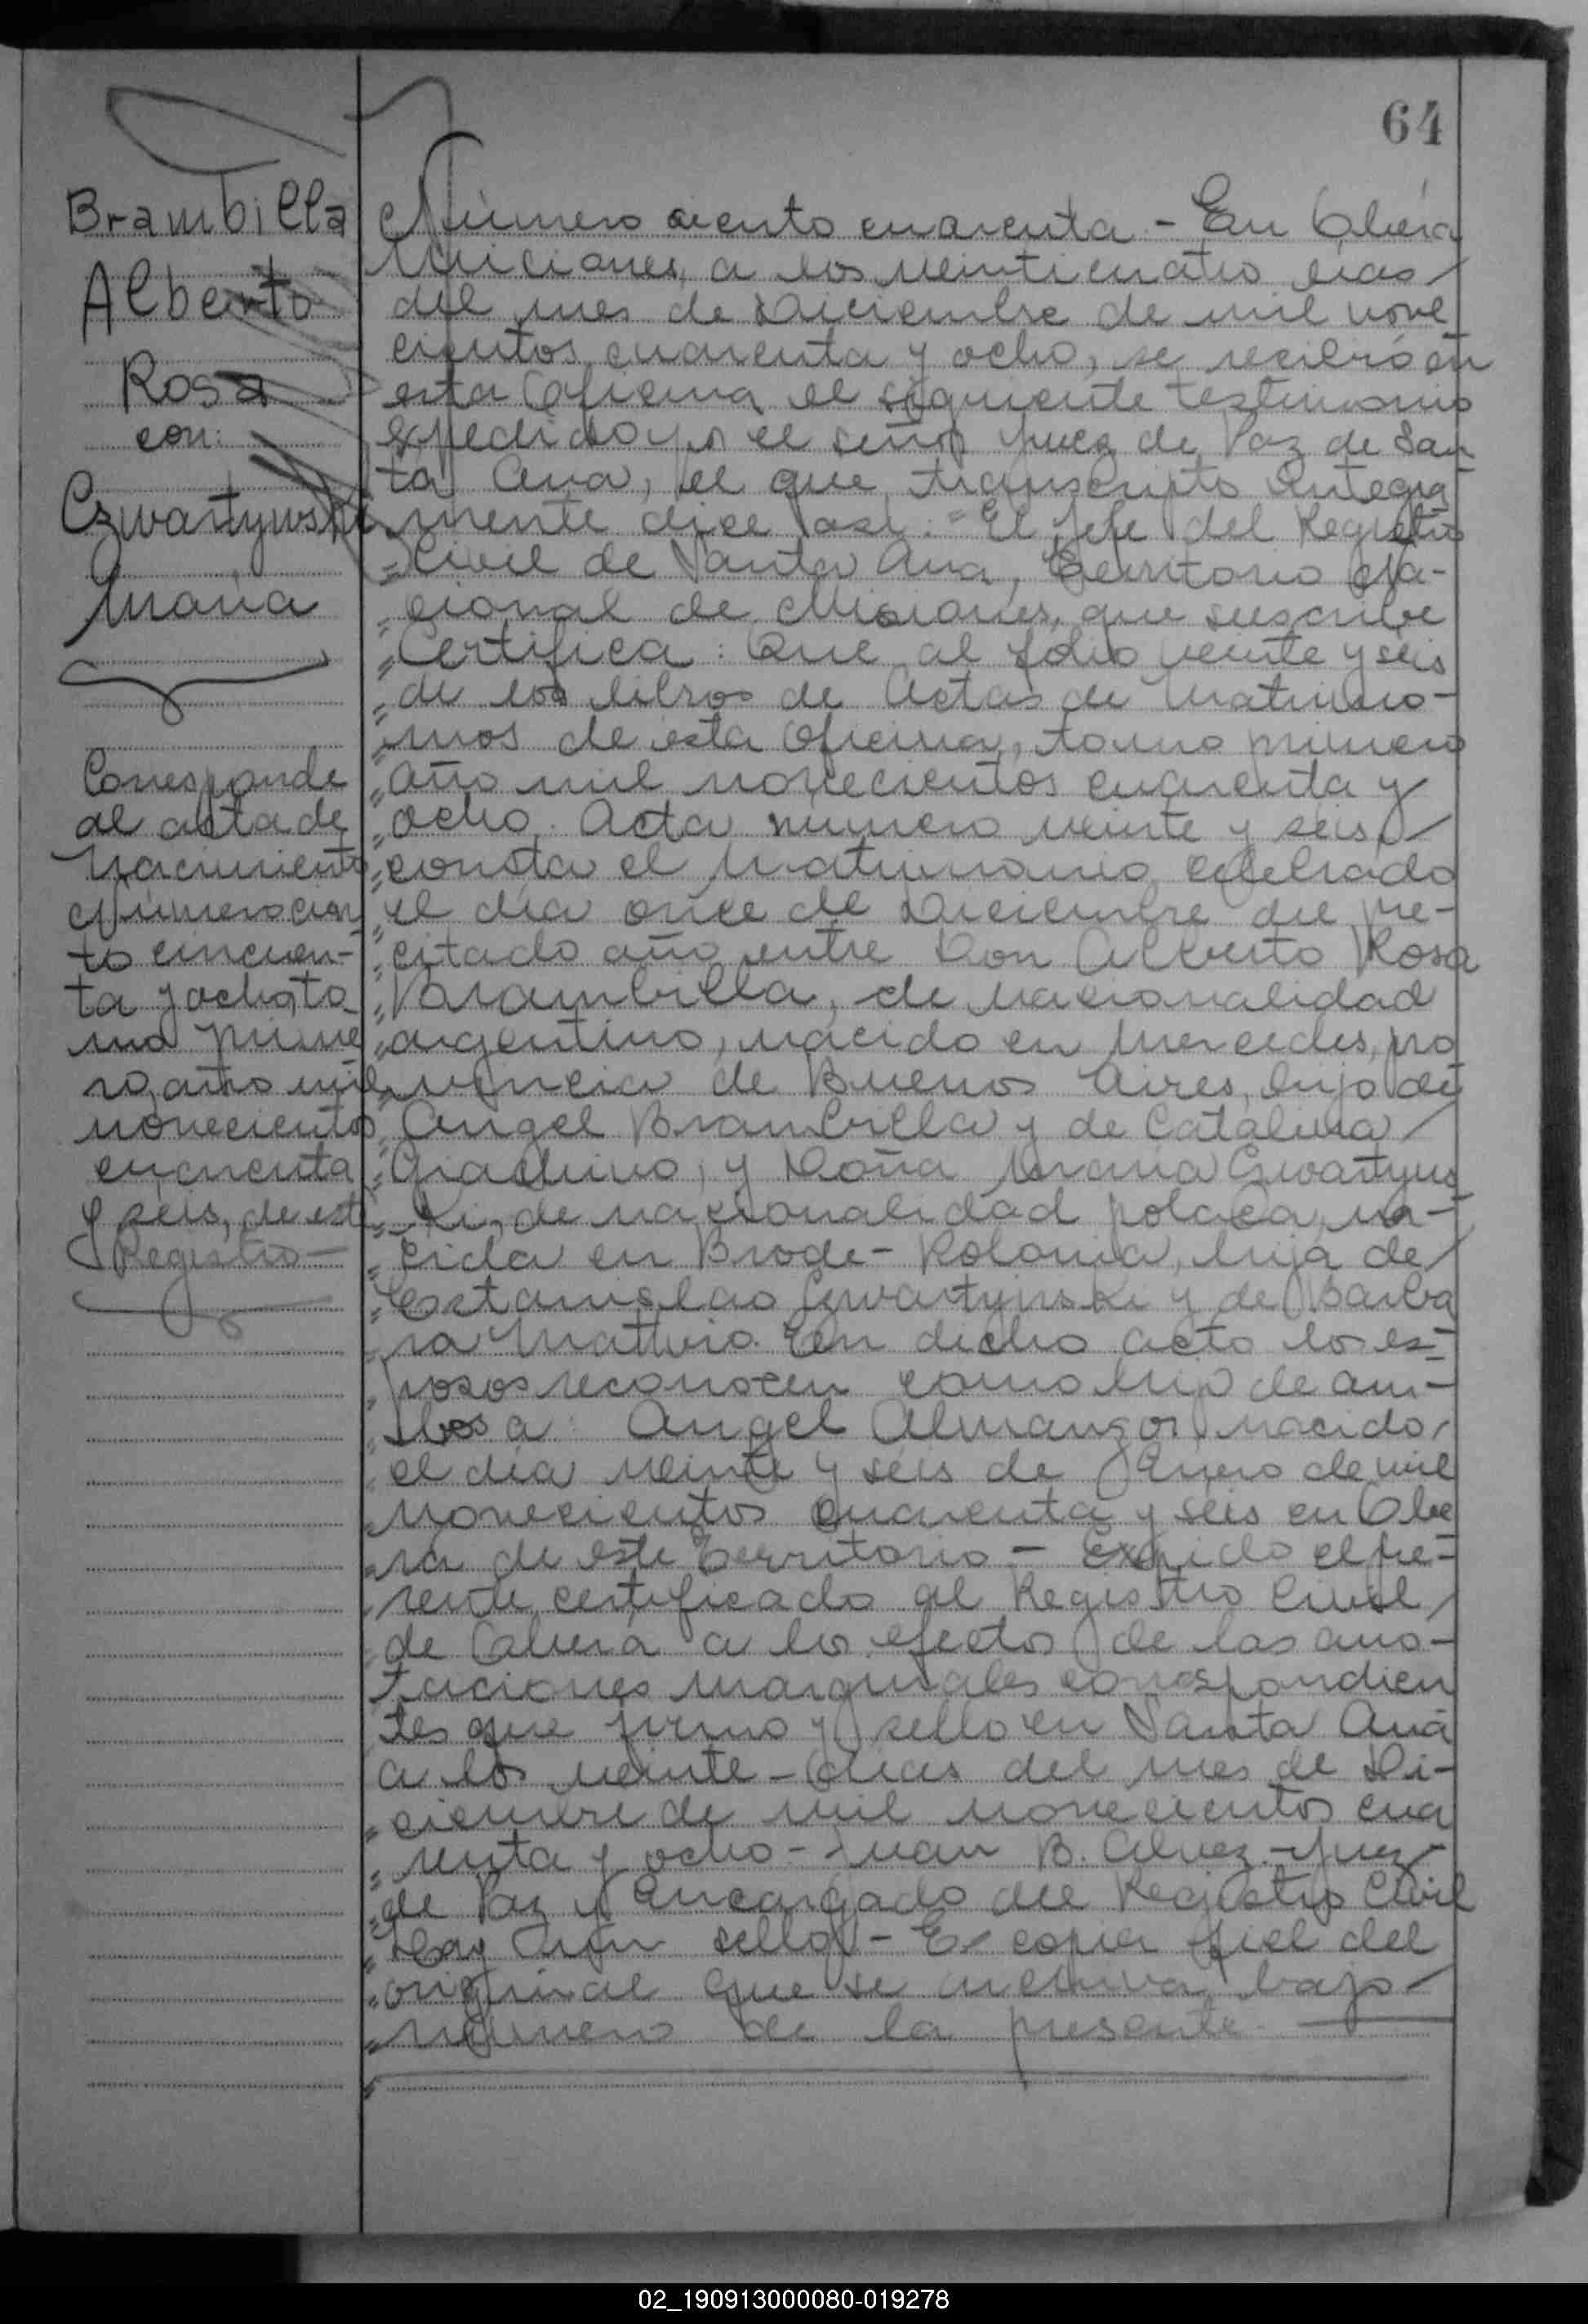 64
Brambilla
Alberto
Rosa
con:
Czwartynski
María
Corresponde
al acta de
Nacimiento
Número cien
to cincuen-
ta y ocho, to
mo prime
ro, año mil
novecientos
cuarenta
y seis, de este
Registro—
Número ciento cuarenta - En Oberá
Misiones, a los veinticuatro días
del mes de Diciembre de mil nove
cientos cuarenta y ocho, se recibió en
esta Oficina el siguiente testimonio
expedido por el señor Juez de Paz de San
ta Ana, el que transcripto íntegra
mente dice así: "El Jefe del Registro
"Civil de Santa Ana, Territorio Na-
"cional de Misiones, que suscribe
"Certifica: Que al folio veinte y seis
"de los libros de Actas de Matrimo-
"nios de esta Oficina, tomo primero
"año mil novecientos cuarenta y
"ocho. Acta número veinte y seis,
"consta el Matrimonio celebrado
"el día once de Diciembre del pre-
"citado año entre Don Alberto Rosa
"Brambilla, de nacionalidad
"argentino, nacido en Mercedes, pro
"vincia de Buenos Aires, hijo de
"Angel Brambilla y de Catalina
"Giachino, y Doña María Czwartyns
"ki, de nacionalidad polaca, na-
"cida en Brode-Kolonia, hija de
"Estanislao Czwartynski y de Bárba
"ra . En dicho acto los es-
"posos reconocen como hijo de am-
"bos a: Angel Almanzor, nacido
"el día veinte y seis de Enero de mil
"novecientos cuarenta y seis en Obe
"rá de este Territorio - Expido el pre-
"sente certificado al Registro Civil
"de Oberá a los efectos de las ano-
"taciones marginales correspondien
"tes que firmo y sello en Santa Ana
a los veinte-días del mes de Di-
"ciembre de mil novecientos cua
"renta y ocho - Juan B. Alvez - Juez
"de Paz y Encargado del Registro Civil
"Hay un sello" - Es copia fiel del
"original que se archiva bajo
"número de la presente.
02_190913000080-019278